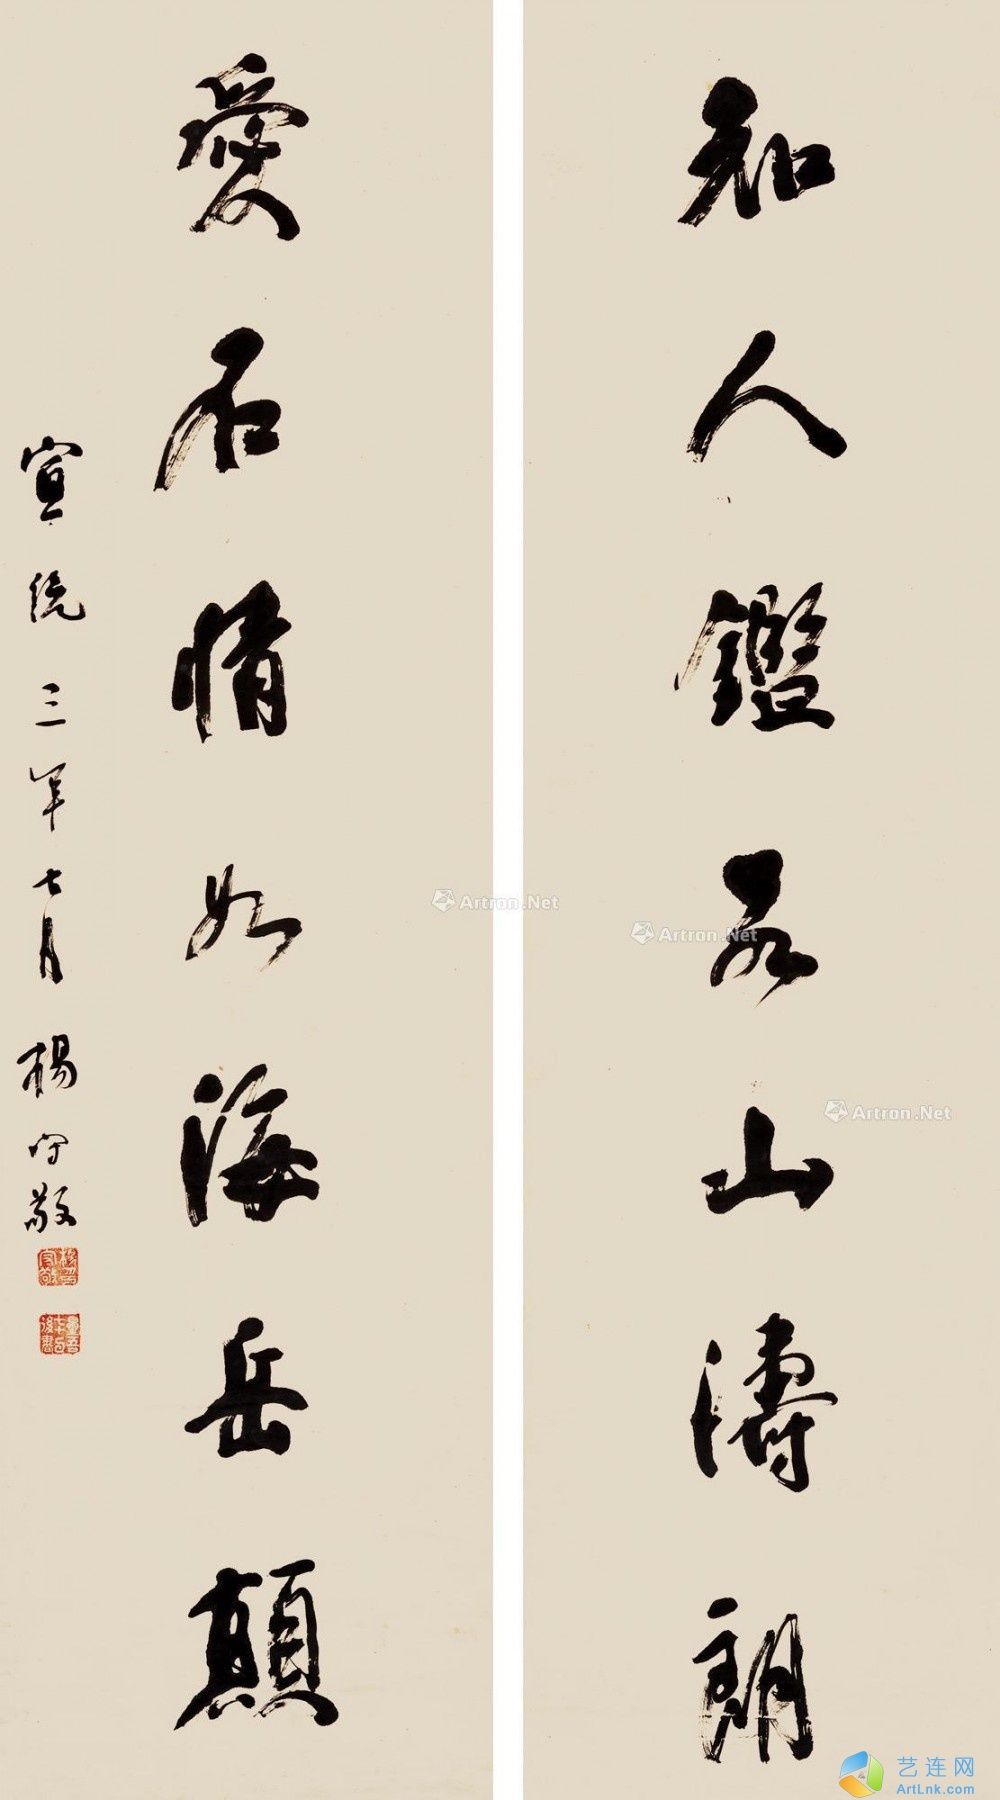 知人鑑若山濤朗
愛石情如海岳顛
宣統三年七月 楊守敬
楊守敬印
星吾七十以後書
Artron.Net
Artron.Net
Artron.Net
艺连网
ArtLnk.com